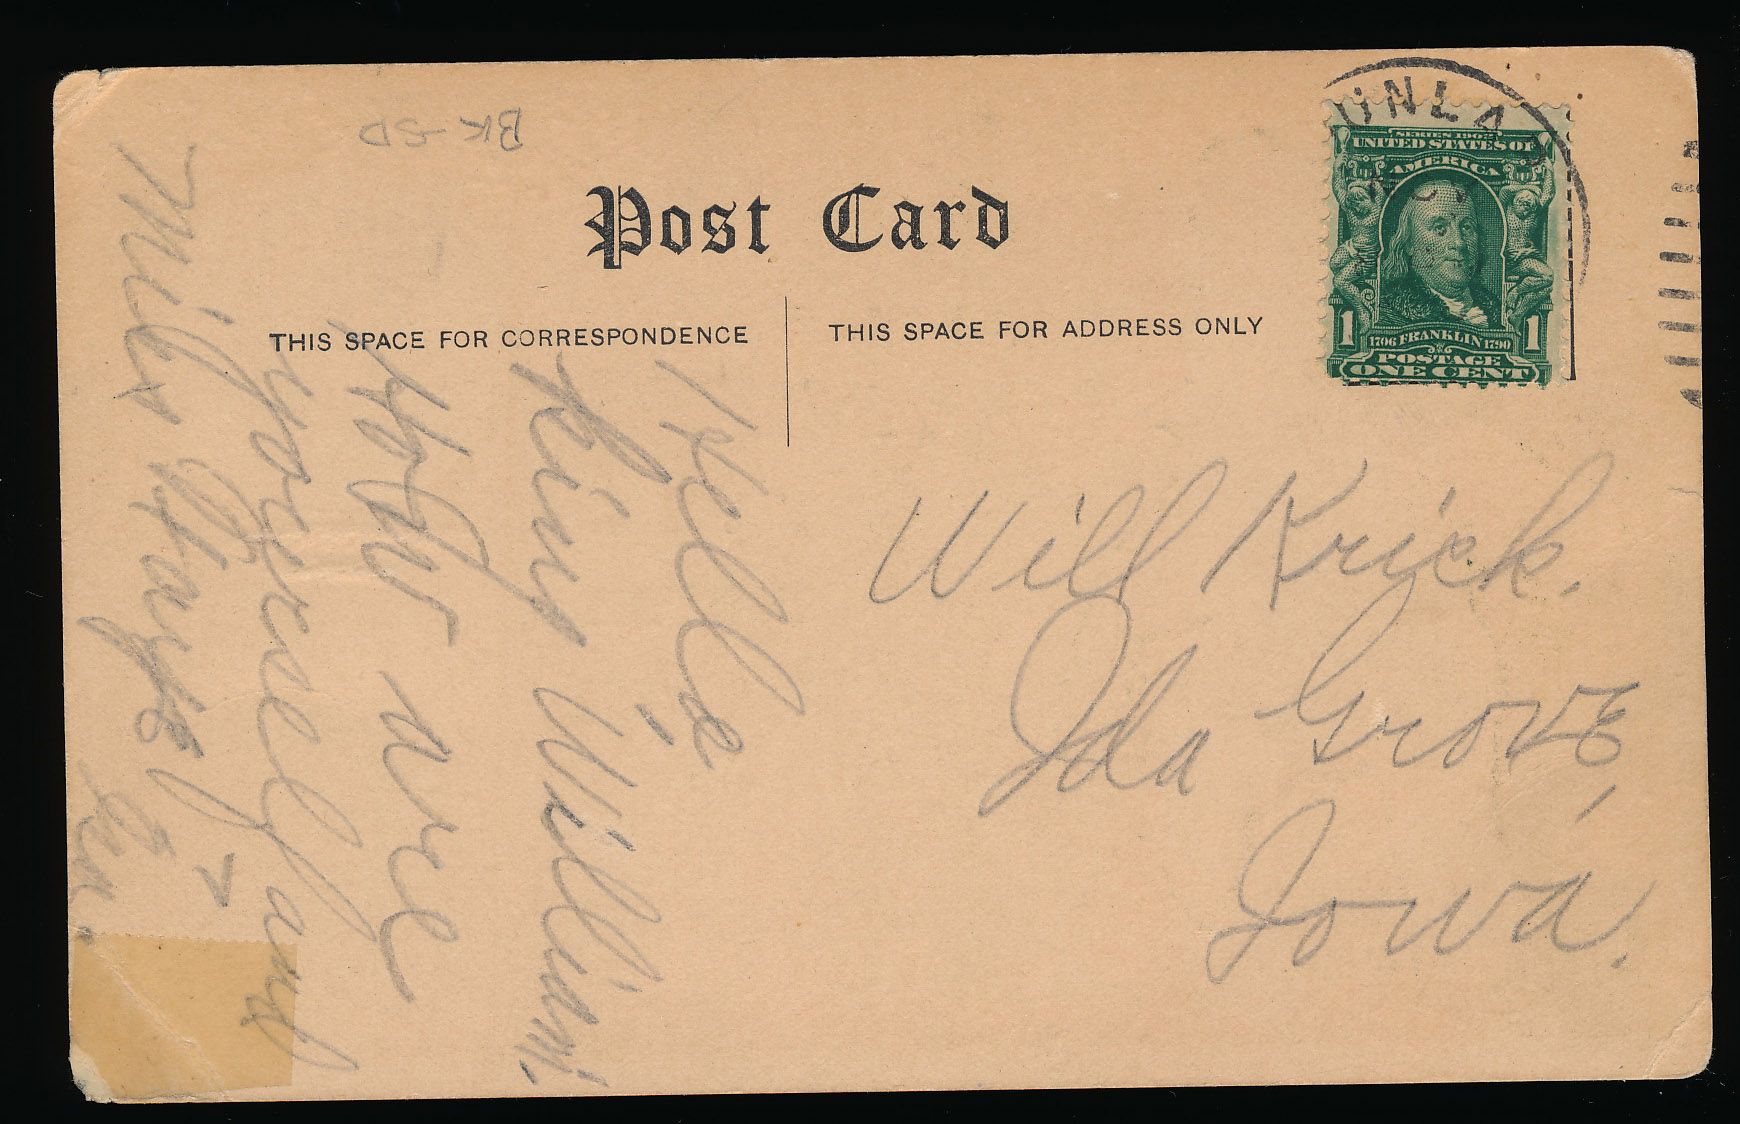 BK-SD
Post Card
THIS SPACE FOR CORRESPONDENCE
THIS SPACE FOR ADDRESS ONLY
UNLA
SERIES 1902
UNITED STATES OF
AMERICA
1706 FRANKLIN 1790
1 1
POSTAGE
ONE CENT
Hello
King William!
How are
yoreself and
Will Krick.
Ida Grove,
Iowa.